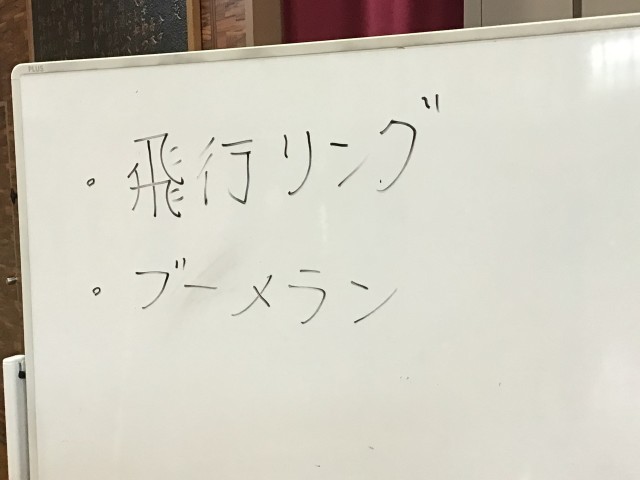 PLUS
・飛行リング
・ブーメラン